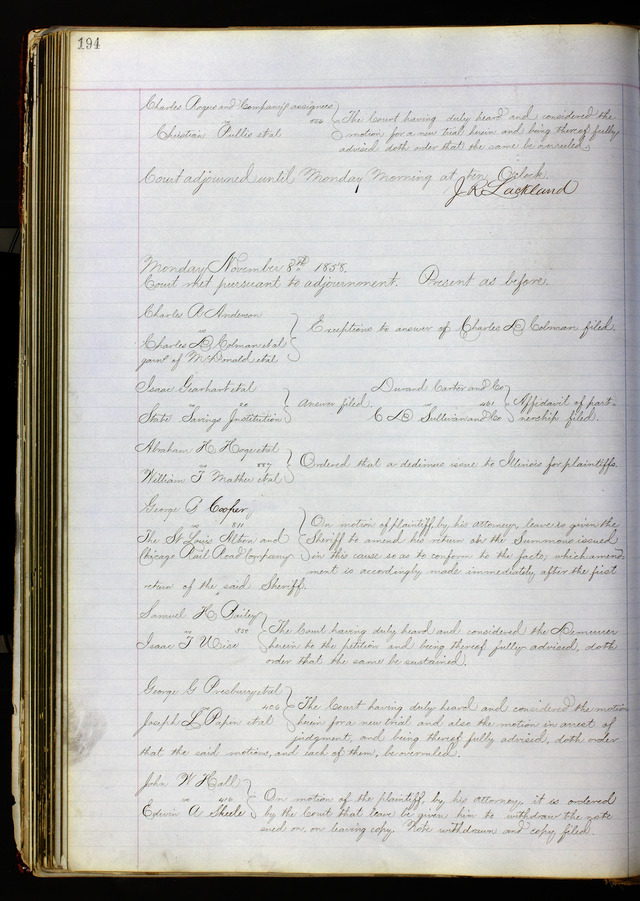 194
Charles Rogers and Company assignees
vs 456
Christian Pullis et al
The Court having duly heard and considered the
motion for a new trial herein and being thereof fully
advised doth order that the same be overruled.
Court adjourned until Monday Morning at ten O'clock.
J. R. Lackland
Monday November 8th 1858.
Court met pursuant to adjournment. Present as before.
Charles A Anderson
vs
Charles D Colman et al
garns of McDonald et al
Exceptions to answer of Charles D Colman filed.
Isaac Gearhart et al
vs 20
State Savings Institution
Answer filed.
Durand Carter and Co
vs 401
C D Sullivan and Co
Affidavit of part-
nership filed.
Abraham H Hoge et al
vs 887
William T Mather et al
Ordered that a dedimus issue to Illinois for plaintiffs.
George G Cooper
vs 811
The St Louis Alton and
Chicago Rail Road Company
On motion of plaintiff, by his attorney, leave is given the
Sheriff to amend his return on the Summons issued
in this cause so as to conform to the facts, which amend-
ment is accordingly made immediately after the first
return of the said Sheriff.
Samuel H Bailey
vs 350
Isaac T Wise
The Court having duly heard and considered the Demurrer
herein to the petition and being thereof fully advised, doth
order that the same be sustained.
George G Presbury et al
vs 406
Joseph L Papin et al
The Court having duly heard and considered the motion
herein for a new trial and also the motion in arrest of
judgment, and being thereof fully advised, doth order
that the said motions, and each of them, be overruled.
John W Hall
vs 416
Edwin A Skeele
On motion of the plaintiff, by his attorney, it is ordered
by the Court that leave be given him to withdraw the note
sued on, on leaving copy. Note withdrawn and copy filed.